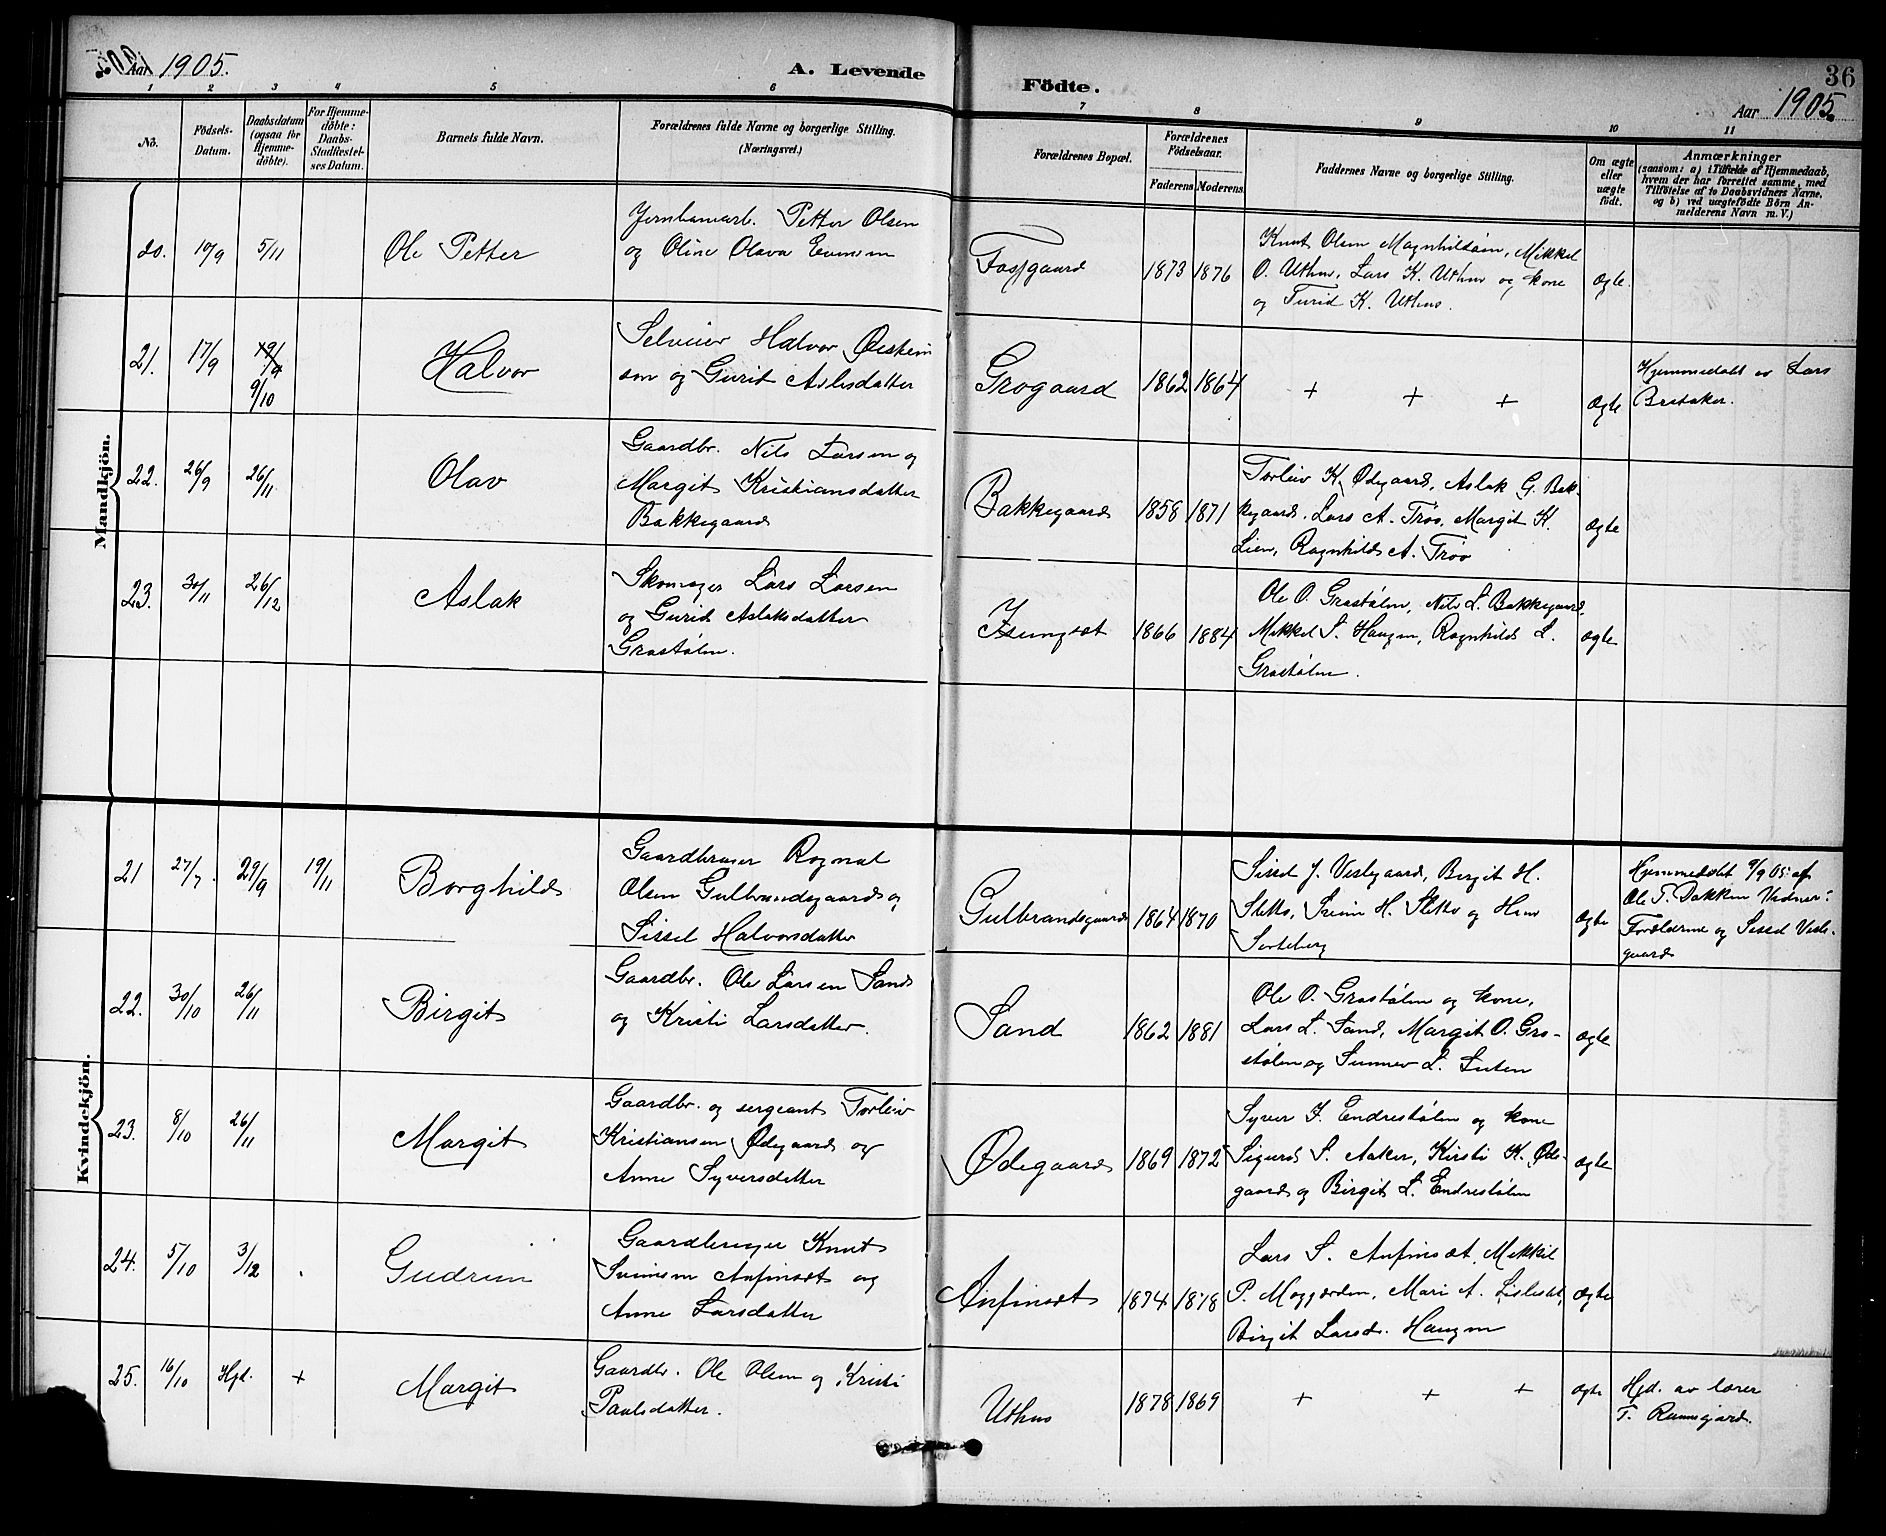 Aar 1905.
A. Levende
Födte.
36
Aar 1905.
1 2 3 4 5 6 7 8 9 10 11
No.
Födsels-
Datum.
Daabsdatum
(ogsaa for
Hjemme-
döbte).
For Hjemme-
döbte:
Daabs-
Stadfæstel-
ses Datum.
Barnets fulde Navn.
Forældrenes fulde Navne og borgerlige Stilling.
(Næringsvei.)
Forældrenes Bopæl.
Forældrenes
Födselsaar.
Faderens Moderens
Faddernes Navne og borgerlige Stilling.
Om ægte
eller
uægte
födt.
Anmærkninger
(saasom: a) i Tilfælde af Hjemmedaab,
hvem der har forrettet samme, med
Tilföielse af to Daabsvidners Navne,
og b) ved uægtefödte Börn An-
melderens Navn m. V.)
Mandkjön.
20. 10/9 5/11 Ole Petter
Jernbanearb. Petter Olsen
og Oline Olava Evensen
Fossgaard 1873 1876
Knut Olsen Magnhildsøin, Mikkel
O. Uthus, Lars K. Uthus og kone
og Turid K. Uthus.
ægte.
21. 17/9 19/9
9/10
Halvor
Selveier Halvor Østein
søn og Gurid Aslesdatter
Grøgaard 1862 1864 + + + ægte
Hjemmedøbt av Lars
Breaker.
22. 26/9 26/11 Olav
Gaardbr. Nils Larsen og
Margit Kristiansdatter
Bakkegaard
Bakkegaard 1858 1871
Torleiv K. Ødegaard, Aslak G. Bak-
kegaard, Lars A. Trøo, Margit K.
Lien, Ragnhild A. Trøo
ægte
23. 30/11 26/12 Aslak
Skomager Lars Larsen
og Gurid Aslaksdatter
Grøstølen.
Isungset 1866 1884
Ole O. Grøstølen, Nils L. Bakkegaard,
Mikkel S. Haugen, Ragnhild L.
Grøstølen.
ægte
Kvindekjön.
21 27/7. 29/9 19/11 Borghild
Gaardbruger Rognal
Olsen Gulbrandsgaard og
Sissel Halvorsdatter
Gulbrandsgaard 1864 1870
Sissel J. Veslegaard, Birgit H.
Sletto, Svein H. Sletto og
Sorteberg
ægte
Hjemmedøbt 9/9 05 af
Ole T. Bakken Vidner:
Forældrene og Sissel Vesle-
gaard
22. 30/10 26/11 Birgit
Gaardbr. Ole Larsen Sand
og Kristi Larsdatter.
Sand 1862 1881
Ole O. Grøstølen og kone,
Lars L. Sand, Margit O. Grø-
stølen og Sunnev L. Luten
ægte
23. 8/10 26/11 Margit
Gaardbr. og sergeant Torleiv
Kristiansen Ødegaard og
Anne Syversdatter
Ødegaard 1869 1872
Syver I. Endrestølen og kone
Sigurd S. Aaker, Kirsti K. Øde-
gaard og Birgit L. Endrestølen
ægte
24. 5/10 3/12 Gudrun
Gaardbruger Knut
Sveinsen Anfinset og
Anne Larsdatter
Anfinset 1874 1878
Lars S. Anfinset, Mikkel
P. Moggarden, Mari A. Lisleset,
Birgit Larsd. Haugen
ægte
25. 16/10 Hjd. + Margit
Gaardbr. Ole Olsen og Kristi
Paulsdatter.
Uthus 1878 1869 + + + ægte
Hjd. av lærer
T. Rumsgard.